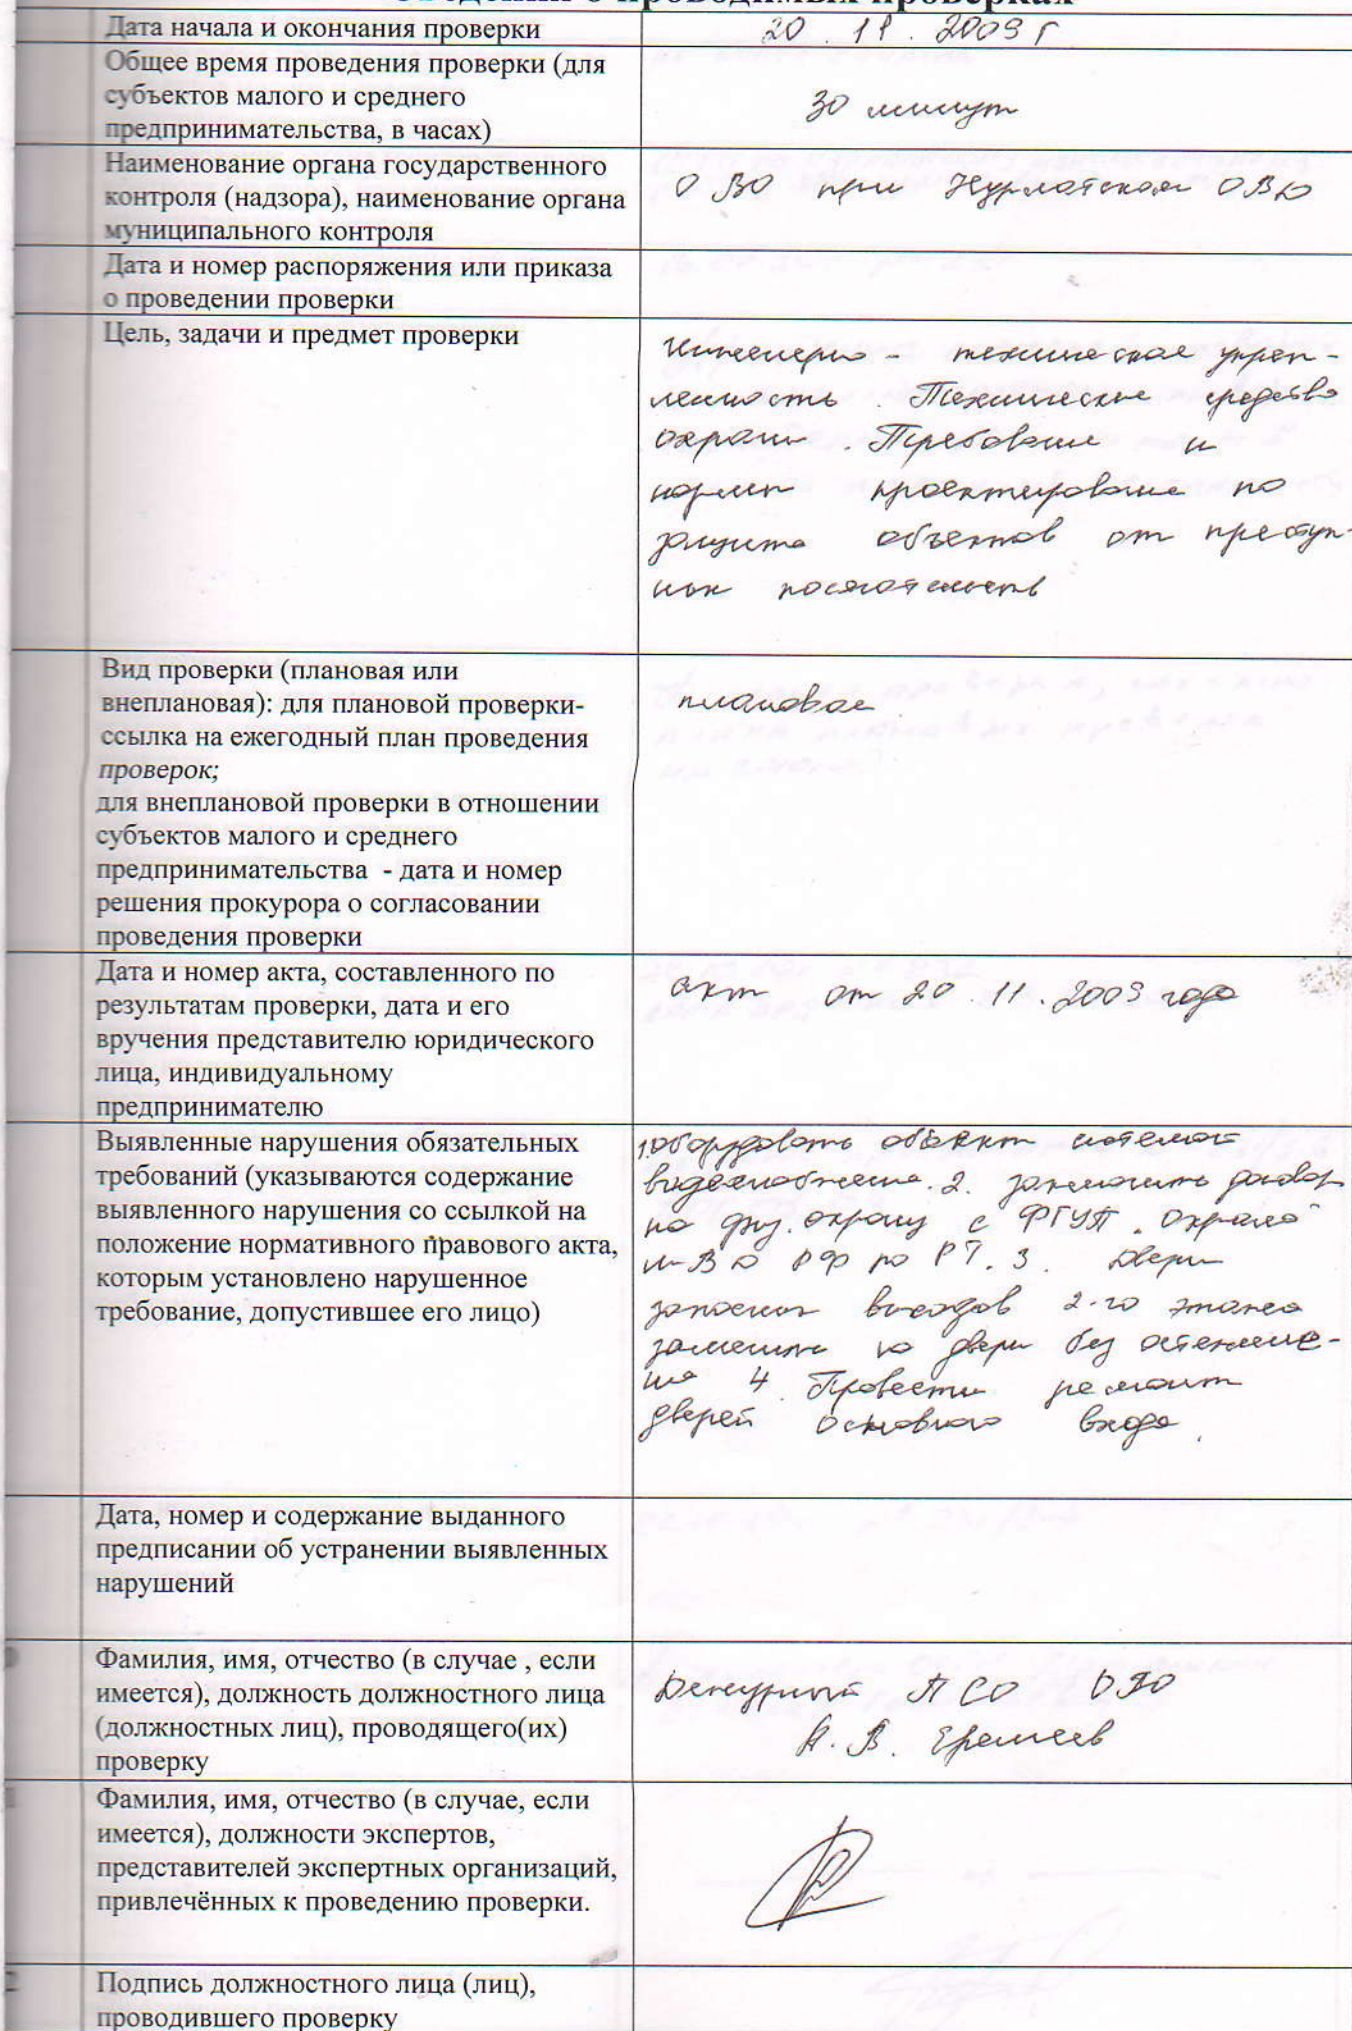 Сведения о проводимых проверках
Дата начала и окончания проверки
20.11.2009 г
Общее время проведения проверки (для
субъектов малого и среднего
предпринимательства, в часах)
30 минут
Наименование органа государственного
контроля (надзора), наименование органа
муниципального контроля
ОВО при Нурлатском ОВД
Дата и номер распоряжения или приказа
о проведении проверки
Цель, задачи и предмет проверки
Инженерно - техническая укреп-
ленность. Технические средства
охраны. Требование и
нормы проектирования по
защите объектов от преступ-
ных посягательств
Вид проверки (плановая или
внеплановая): для плановой проверки-
ссылка на ежегодный план проведения
проверок;
для внеплановой проверки в отношении
субъектов малого и среднего
предпринимательства - дата и номер
решения прокурора о согласовании
проведения проверки
плановая
Дата и номер акта, составленного по
результатам проверки, дата и его
вручения представителю юридического
лица, индивидуальному
предпринимателю
акт от 20.11.2009 года
Выявленные нарушения обязательных
требований (указываются содержание
выявленного нарушения со ссылкой на
положение нормативного правового акта,
которым установлено нарушенное
требование, допустившее его лицо)
1. Оборудовать объект системой
видеонаблюдения. 2. заключить договор
на физ. охрану с ФГУП "Охрана"
МВД РФ по РТ. 3. Двери
запасных выходов 2-го этажа
заменить на двери без остекление-
ния 4. Провести ремонт
дверей основного входа.
Дата, номер и содержание выданного
предписании об устранении выявленных
нарушений
Фамилия, имя, отчество (в случае , если
имеется), должность должностного лица
(должностных лиц), проводящего(их)
проверку
Дежурный ПСО ОВО
А. В. Еремеев
Фамилия, имя, отчество (в случае, если
имеется), должности экспертов,
представителей экспертных организаций,
привлечённых к проведению проверки.
Подпись должностного лица (лиц),
проводившего проверку